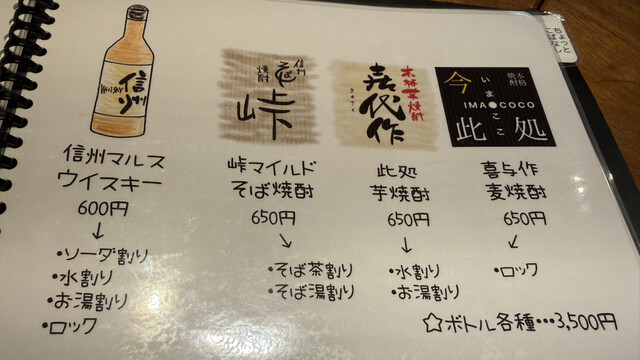 ちょっと
こばなし
WHISKY 信州
信州
そば
焼酎
峠
本格芋焼酎
喜代作
きよさく
本格
焼酎
今 いまここ
IMA●COCO
此処
信州マルス
ウイスキー
600円
↓
・ソーダ割り
・水割り
・お湯割り
・ロック
峠マイルド
そば焼酎
650円
↘
・そば茶割り
・そば湯割り
此処
芋焼酎
650円
↓
・水割り
・お湯割り
喜与作
麦焼酎
650円
↙
・ロック
☆ボトル各種…3,500円